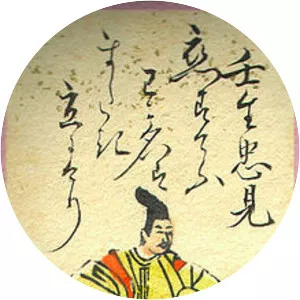 壬生忠見
恋すてふ
わか名は
またき
立にけり